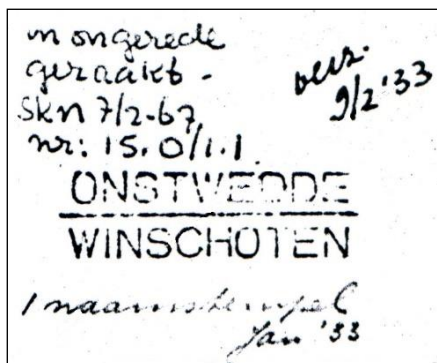 in ongerede
geraakt -
skn 7/2-67
nr: 15.0/1.1
verz.
9/2 '33
ONSTWEDDE
WINSCHOTEN
1 naamstempel
Jan '33